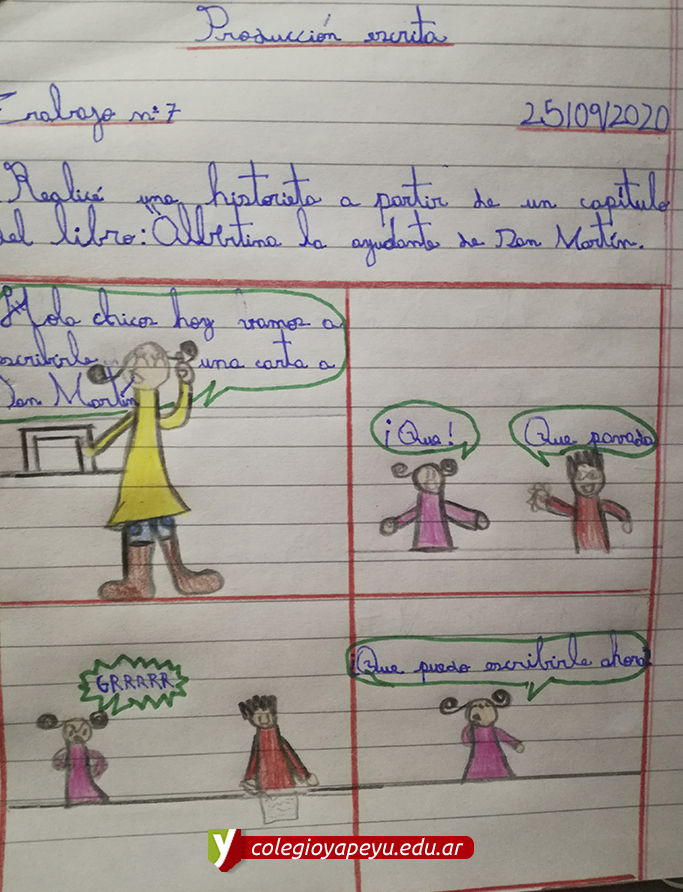 Producción escrita
Trabajo n° 7
25/09/2020
Realicé una historieta a partir de un capítulo
del libro: "Albertina la ayudante de San Martín.
Hola chicos hoy vamos a
escribirle una carta a
San Martín
¡Que!
Que pavada
GRRRARR
¡Que puedo escribirle ahora!
y colegioyapeyu.edu.ar